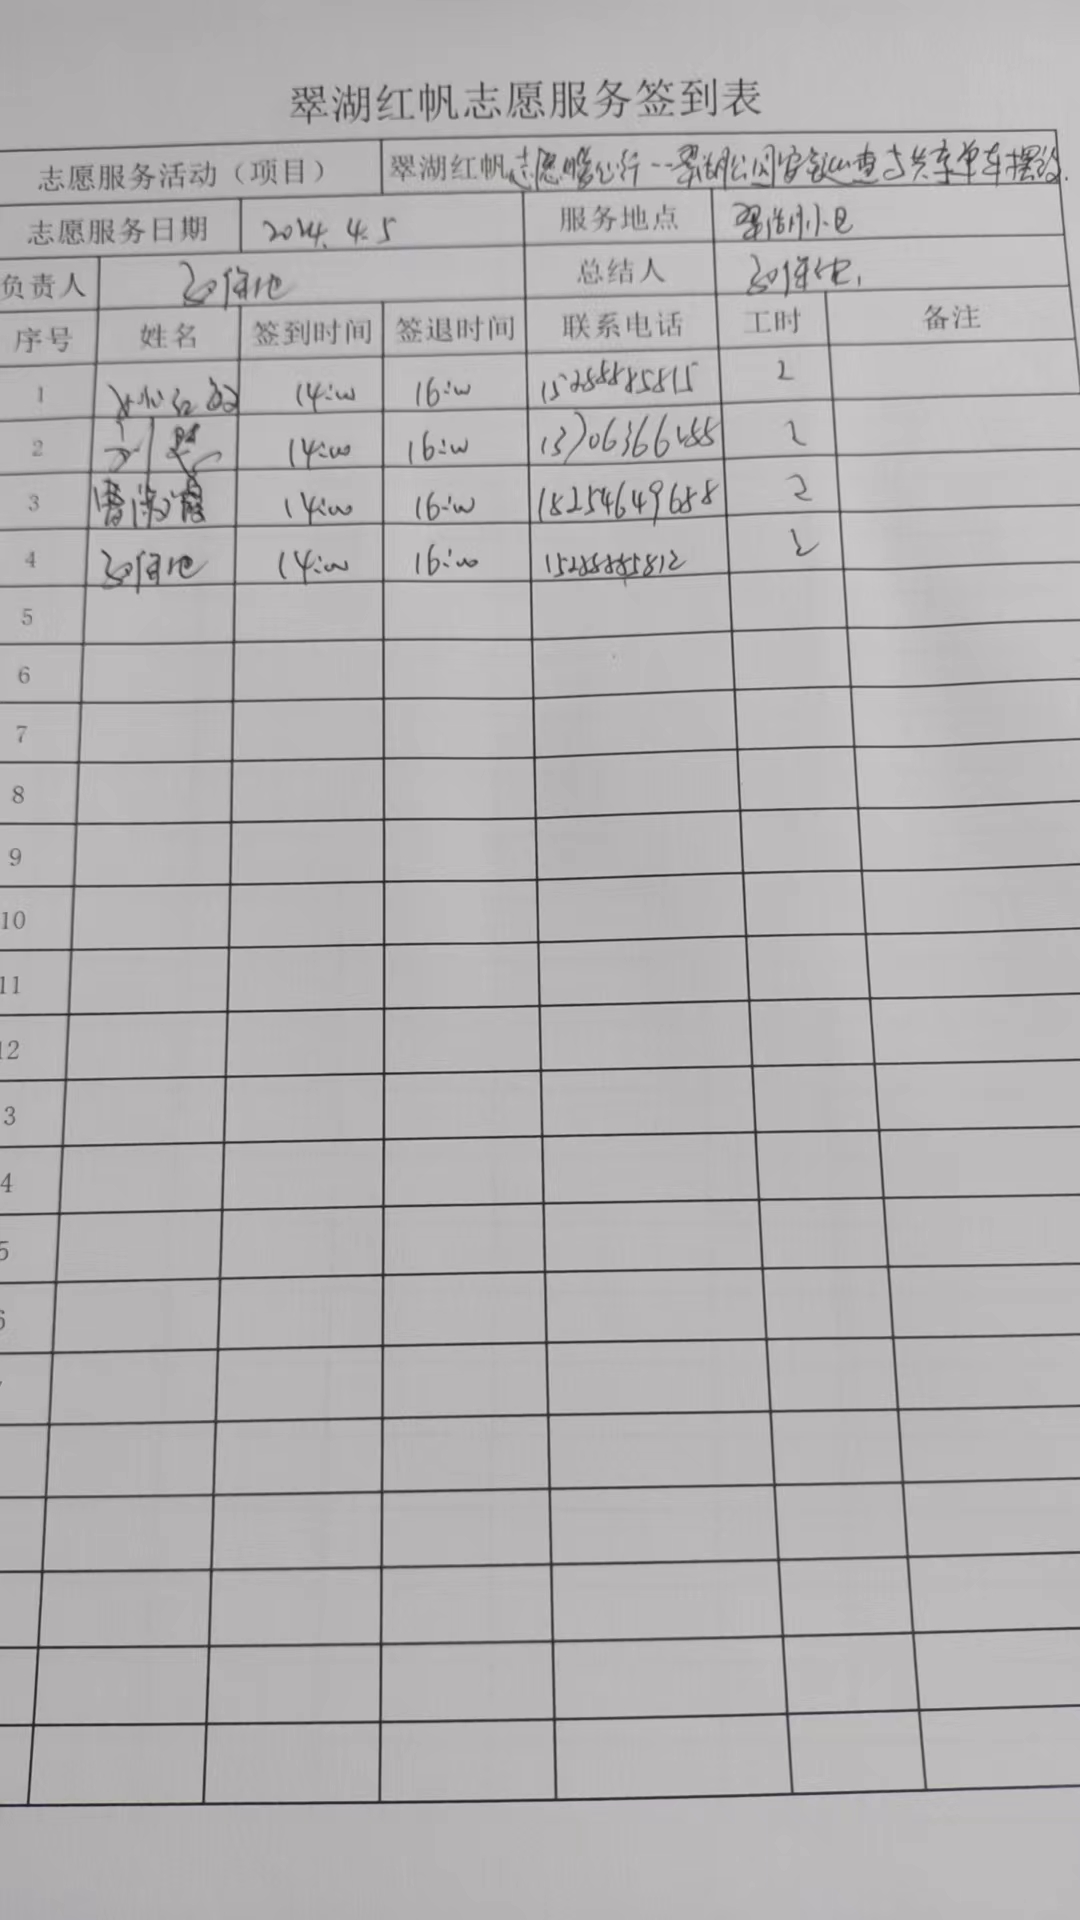 翠湖红帆志愿服务签到表
志愿服务活动（项目） 翠湖红帆志愿暖心行--翠湖公园安全巡查与共享单车摆放.
志愿服务日期 2024.4.5 服务地点 翠湖小区
负责人 总结人
序号 姓名 签到时间 签退时间 联系电话 工时 备注
1 14:00 16:00 15288885815 2
2 14:00 16:00 2
3 曹淑霞 14:00 16:00 18254649688 2
4 14:00 16:00 15288885812 2
5
6
7
8
9
10
11
12
3
4
5